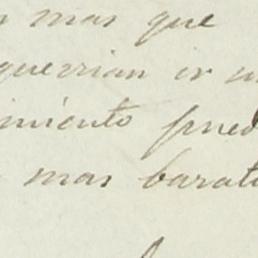 mas que
querrian ir
imiento pued
mas barat